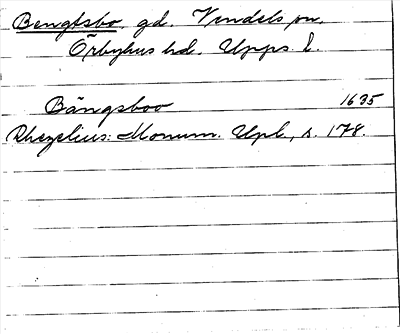 Bengtsbo, gd. Vendels sn.
Örbyhus hd. Upps. l.
Bängsboo 1635
Rhezelius: Monum. Upl., s. 178.